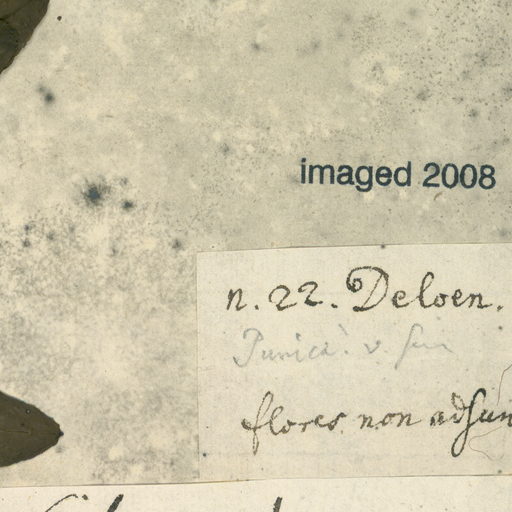 imaged 2008
n. 22. Deloen.
Punica. v.
flores non adsun